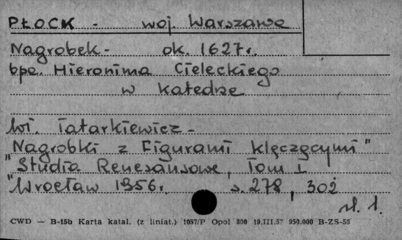 PŁOCK - woj. Warszawa
Nagrobek - ok. 1627r.
bpa. Hieronima Cieleckiego
w katedrze
Wł. Tatarkiewicz -
"Nagrobki z Figurami klęczącymi"
"Studia Renesansowe, Tom I
"Wrocław 1956r. s. 278, 302
CWD — B-15b Karta katal. (z liniat.) 1957/P Opol 890 19.III.57 950.000 B-ZS-55